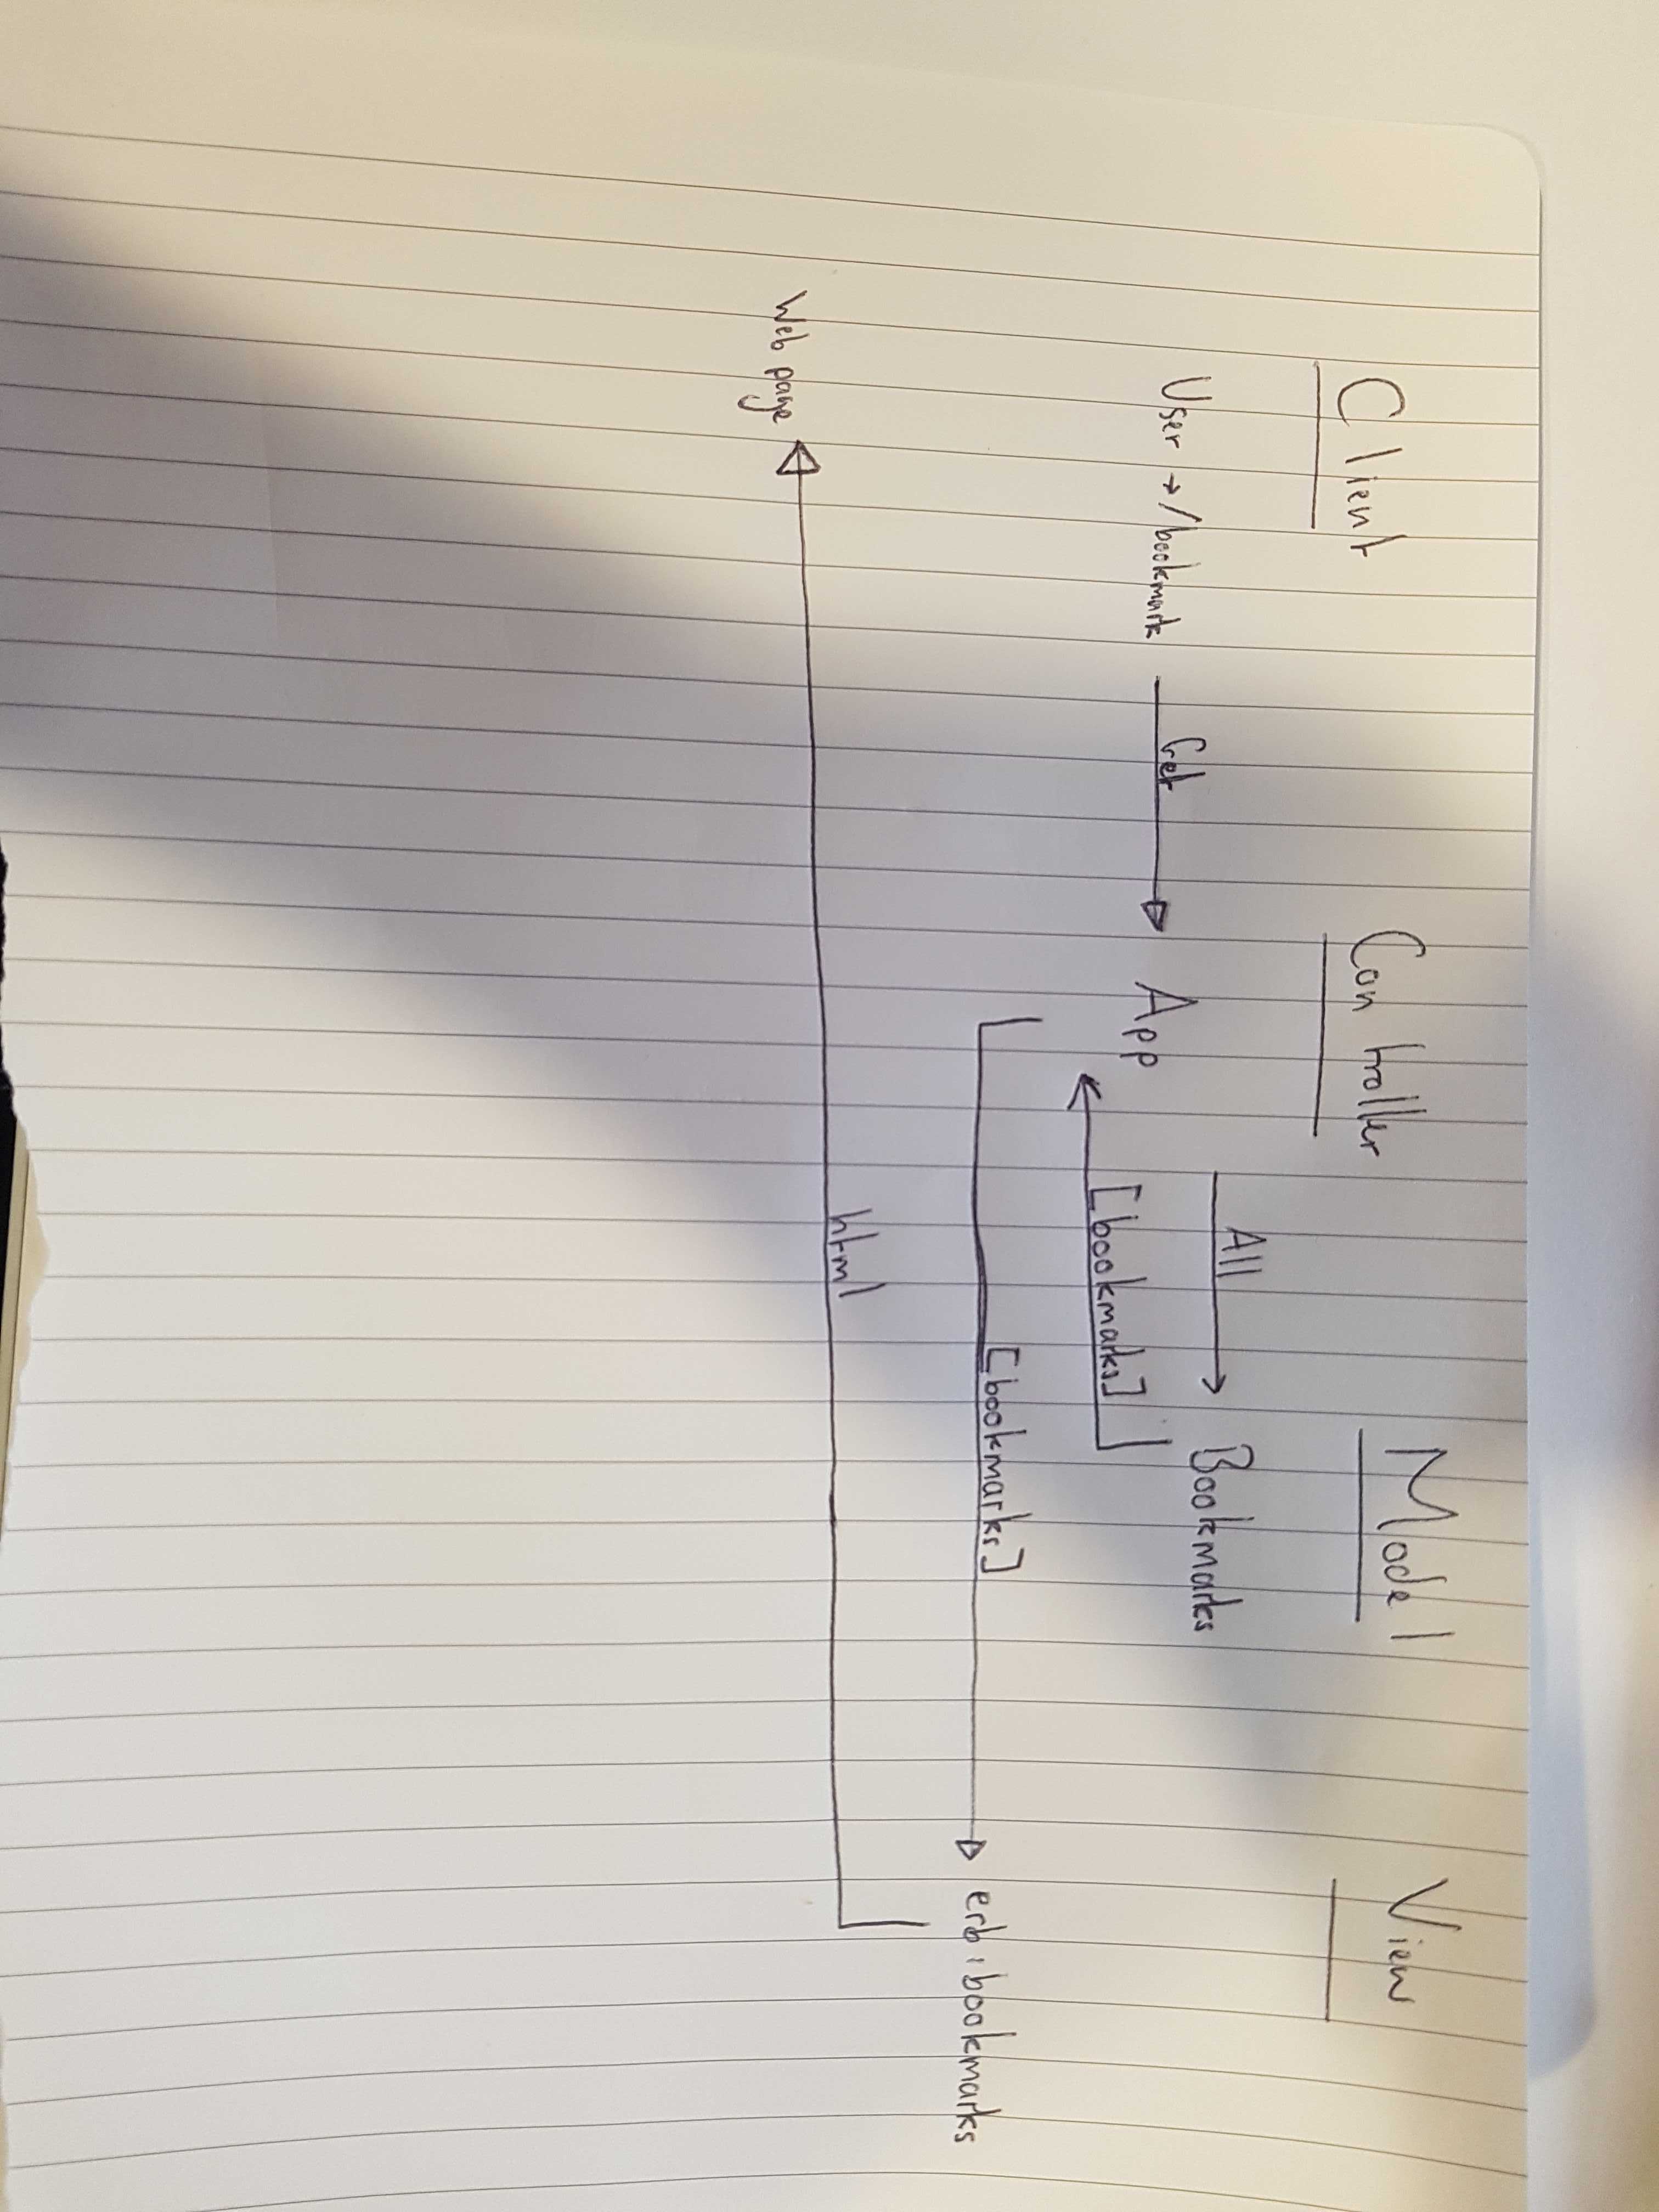 Client Controller Model View
User → /bookmark Get App All Bookmarks
[bookmarks]
[bookmarks] erb:bookmarks
html
Web page